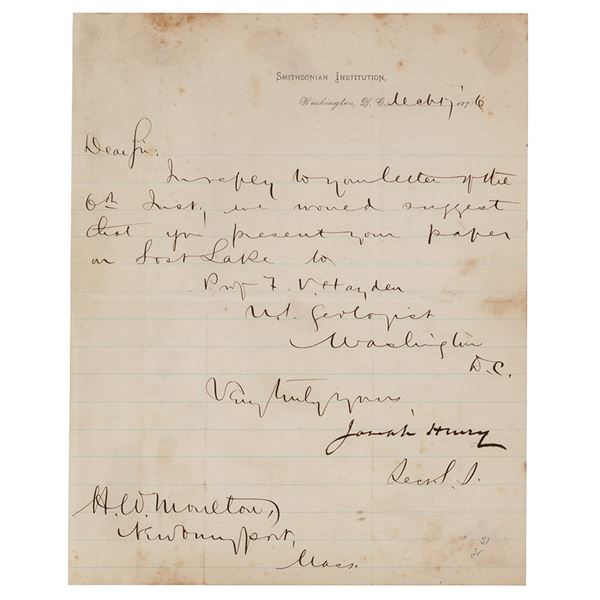 SMITHSONIAN INSTITUTION,
Washington, D. C. 1876
Dear Sir:
In reply to your letter of the
6th Inst, we would suggest
that you present your paper
on Lost Lake to
Prof F. V. Hayden
U.S. Geologist
Washington
D.C.
Very truly yours,
Joseph Henry
Secr. S. I.
H. W. Moulton,
Newburyport,
Mass.